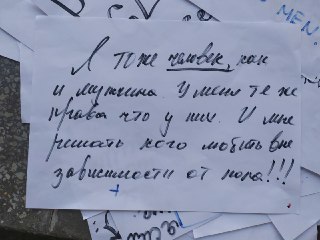 MEN
Я тоже человек, как
и мужчина. У меня те же
права что у них. И мне
решать кого любить вне
зависимости от пола!!!